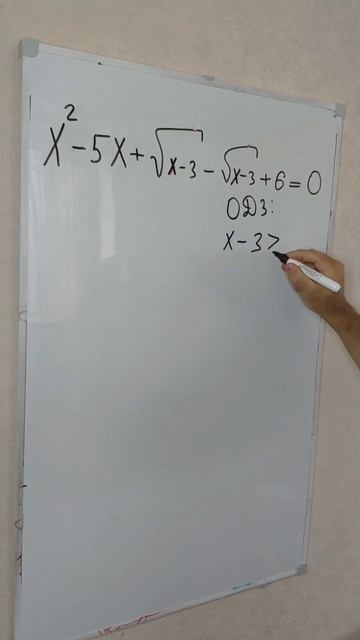 x² - 5x + √x-3 - √x-3 + 6 = 0
ОДЗ:
x - 3 >